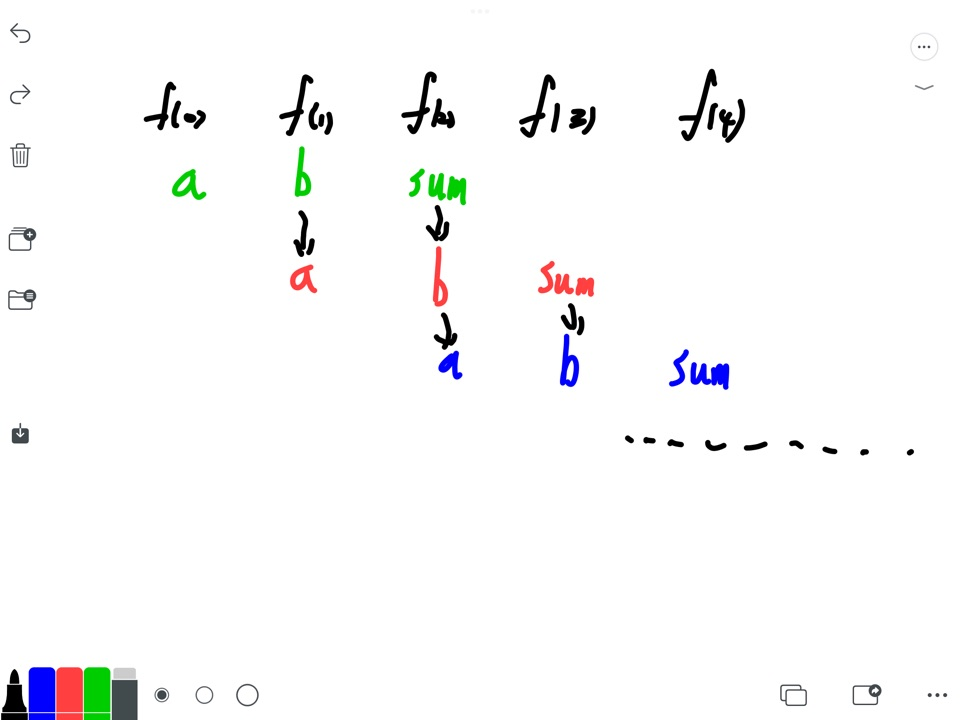 f(0) f(1) f(2) f(3) f(4)
a b sum
a b sum
a b sum